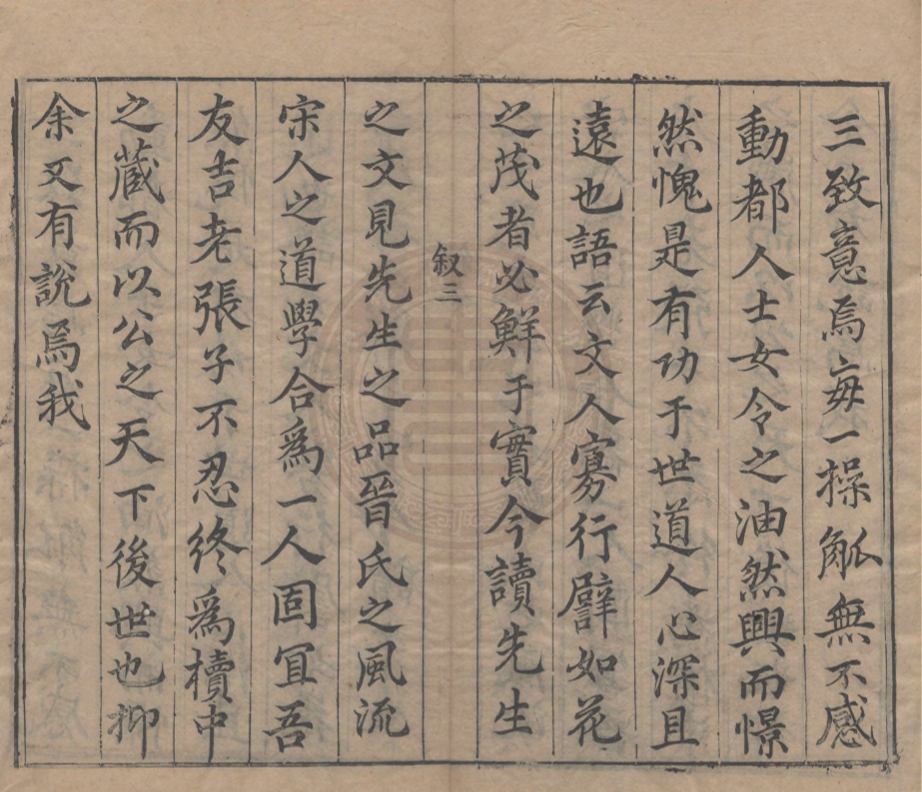 三致意焉每一操觚無不感
動都人士女令之油然興而憬
然愧是有功于世道人心深且
遠也語云文人寡行譬如花
之茂者必鮮于實今讀先生
叙三
之文見先生之品晉氏之風流
宋人之道學合爲一人固冝吾
友吉老張子不忍終爲櫝中
之藏而以公之天下後世也抑
余又有說焉我